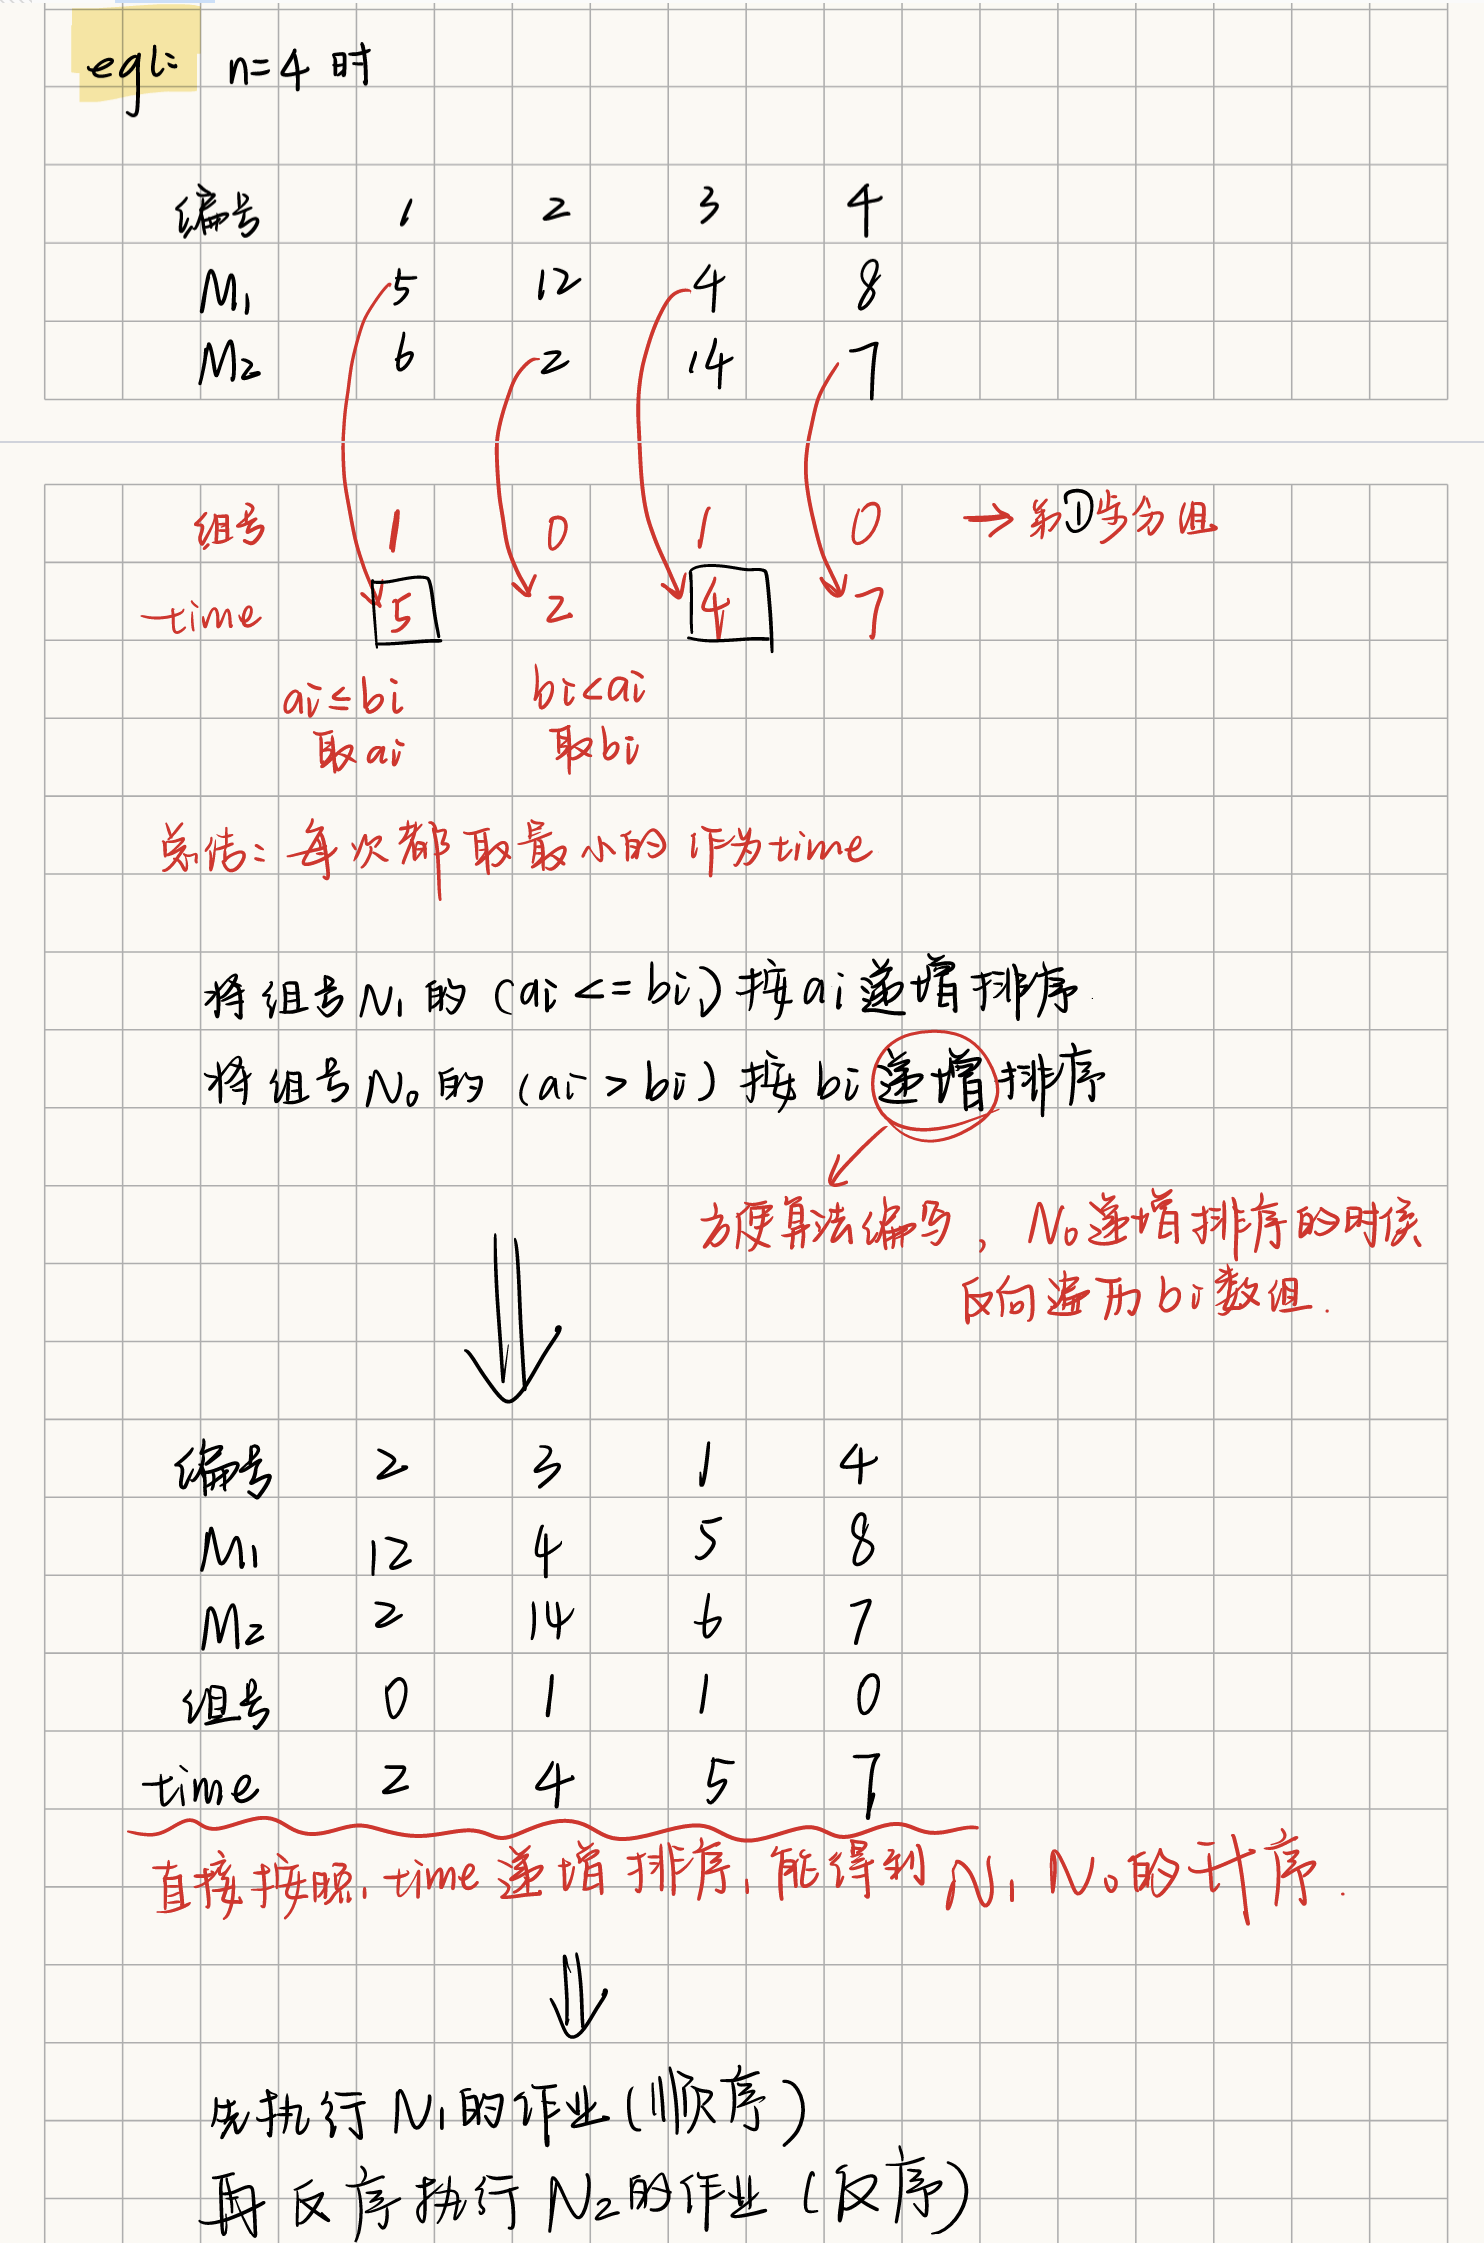 eg1: n=4 时
编号 1 2 3 4
M1 5 12 4 8
M2 6 2 14 7
组号 1 0 1 0 → 第①步分组
time 5 2 4 7
ai≤bi bi<ai
取ai 取bi
总结: 每次都取最小的作为time
将组号N1的(ai<=bi)按ai递增排序.
将组号N0的(ai>bi)按bi递增排序
方便算法编写, N0递增排序的时候
反向遍历bi数组.
编号 2 3 1 4
M1 12 4 5 8
M2 2 14 6 7
组号 0 1 1 0
time 2 4 5 7
直接按照time递增排序,能得到N1 N0的升序.
先执行N1的作业(顺序)
再反序执行N2的作业(反序)